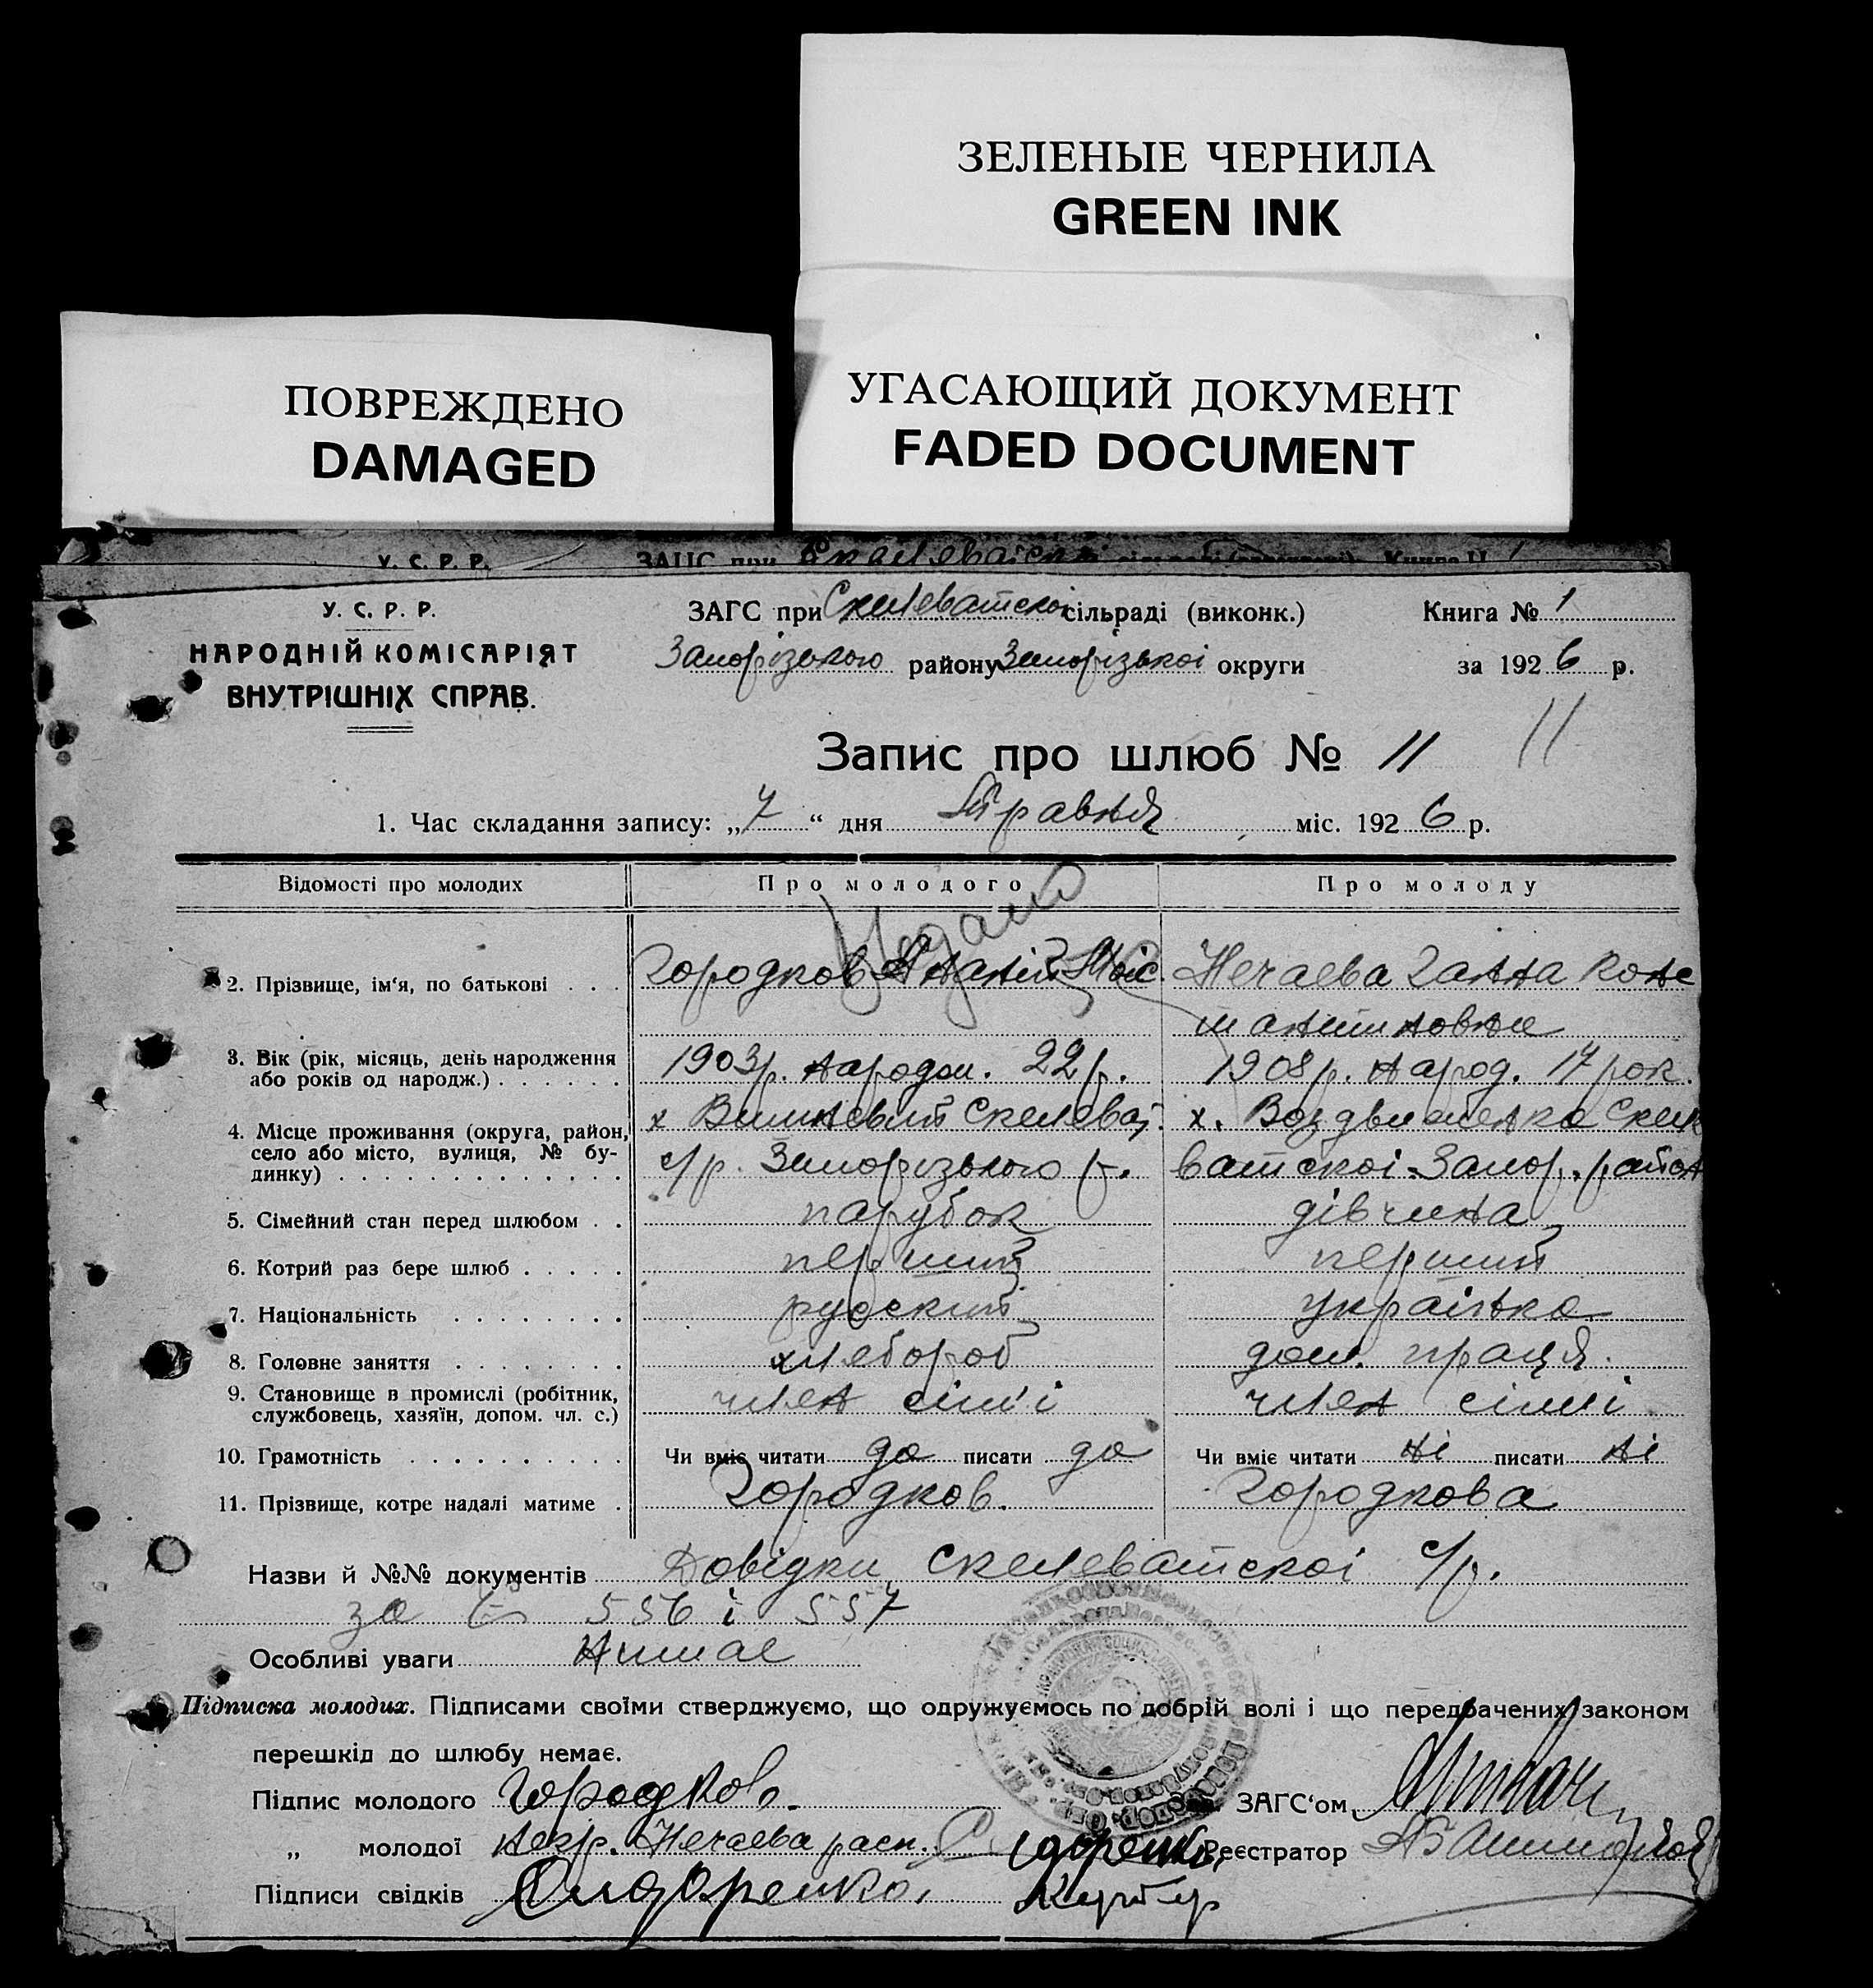 ЗЕЛЕНЫЕ ЧЕРНИЛА
GREEN INK
ПОВРЕЖДЕНО
DAMAGED
УГАСАЮЩИЙ ДОКУМЕНТ
FADED DOCUMENT
У. С. Р. Р.
У. С. Р. Р.
НАРОДНІЙ КОМІСАРІЯТ
ВНУТРІШНІХ СПРАВ.
ЗАГС при Скелеватской сільраді (виконк.) Книга № 1
Запорізького району Запорізької округи за 1926 р.
Запис про шлюб № 11 11
1. Час складання запису: „7“ дня Травня міс. 1926 р.
Відомості про молодих Про молодого Про молоду
2. Прізвище, ім'я, по батькові . . . Городков Ананій Мойс. Нечаева Ганна Конс
тантиновна
3. Вік (рік, місяць, день народження
або років од народж.) . . . . . . 1903р. народж. 22 р. 1908 р. народ. 17 рок.
4. Місце проживання (округа, район,
село або місто, вулиця, № бу-
динку) . . . . . . . . . . . . .
х Вишневий Скелеват. х. Воздвиженка Скеле
с/р. Запорізького р. ватскої Запор. район
5. Сімейний стан перед шлюбом . . парубок дівчина
6. Котрий раз бере шлюб . . . . . перший перший
7. Національність . . . . . . . . русский українка
8. Головне заняття . . . . . . . . хлебороб дом. праця.
9. Становище в промислі (робітник,
службовець, хазяїн, допом. чл. с.) член сім'ї член сімї
10. Грамотність . . . . . . . . . . Чи вміє читати да писати да Чи вміє читати ні писати ні
11. Прізвище, котре надалі матиме . Городков. Городкова
Назви й №№ документів Довідки Скелеватскої с/р.
за 556 і 557
Особливі уваги Нимае
Підписка молодих. Підписами своїми стверджуємо, що одружуємось по добрій волі і що передбачених законом
перешкід до шлюбу немає.
Підпис молодого Городков. ЗАГС'ом
„ молодої негр. Нечаева расп. Сидоренко Реєстратор
Підписи свідків Сидоренко,